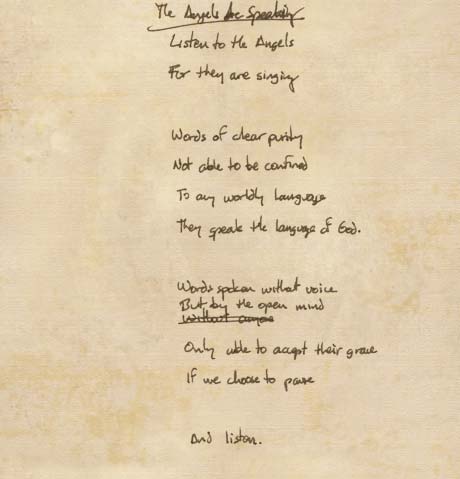 The Angels Are Speaking
Listen to the Angels
For they are singing
Words of clear purity
Not able to be confined
To any worldly language
They speak the language of God.
Words spoken without voice
But by the open mind
without
Only able to accept their grace
If we choose to pause
And listen.